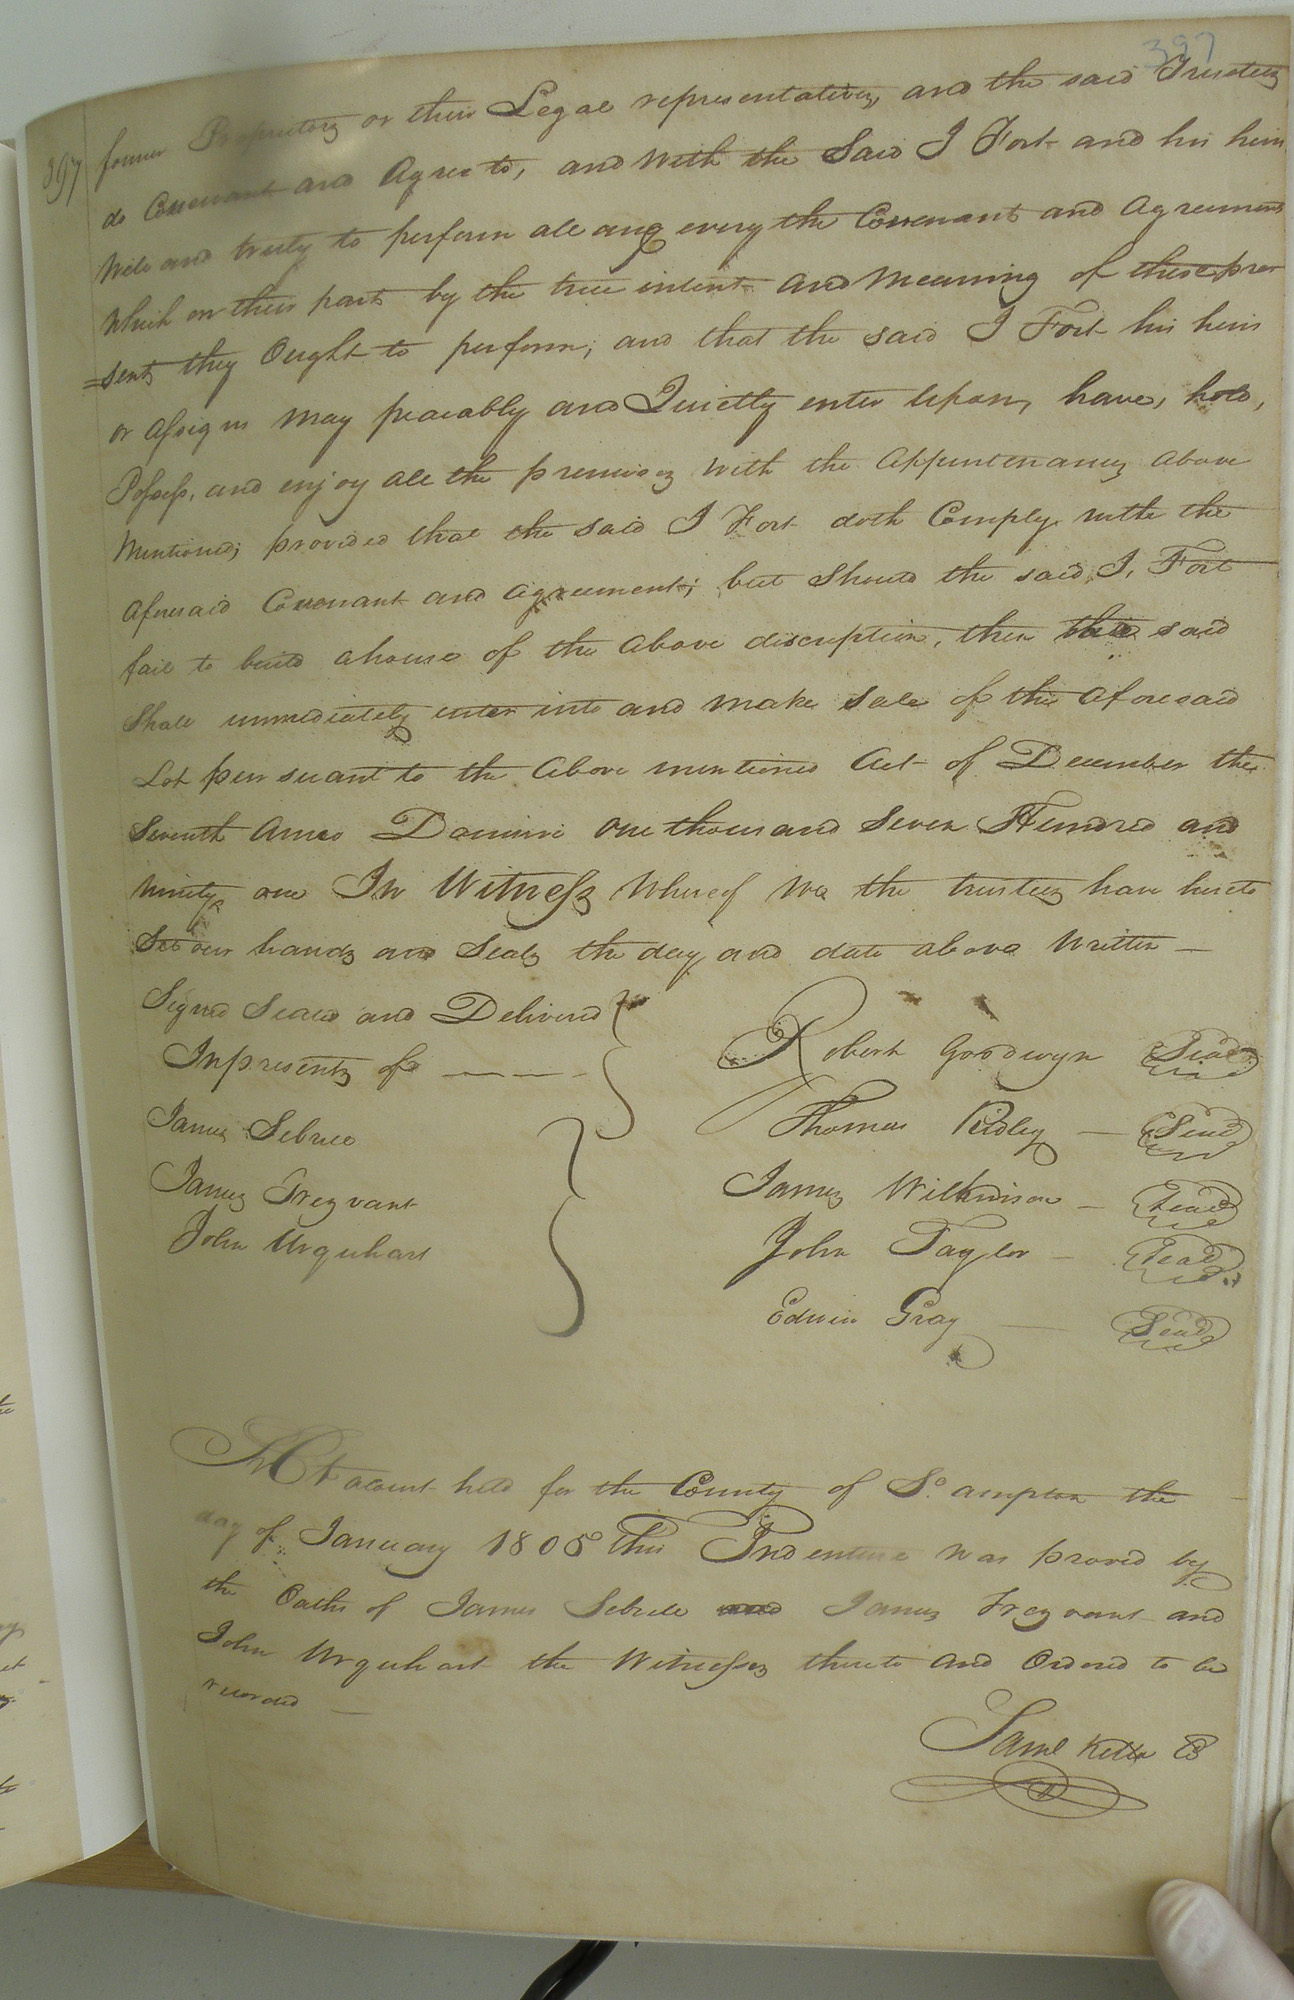 397
397
former Proprietors or their Legal representatives, and the said Trustees
do Covenant and Agree to, and with the Said J Fort and his heirs
Well and truly to perform all and every the Covenant and Agreements
Which on their parts by the true intent and meaning of these pre
=sents they Ought to perform; and that the said J Fort his heirs
or Assigns may peaceably and Quietly enter Upon, have, hold,
Possess, and enjoy all the premises with the Appurtenances above
Mentioned; provided that the said J Fort doth Comply with the
aforesaid Covenant and agreements; but should the said J. Fort
fail to build a house of the above discription, then the said
Shall immediately enter into and make sale of the aforesaid
Lot pursuant to the Above mentioned Act of December the
Seventh Anno Domini one thousand Seven Hundred and
ninety one In Witness Whereof We the trustees have hereto
Set our hands and Seals the day and date above Written —
Signed Sealed and Delivered
In presents of — — —
Robert Goodwyn Seal
James Sebrell
Thomas Ridley — Seal
James Trezvant
James Wilkinson — Seal
John Urquhart
John Taylor — Seal
Edwin Gray — Seal
At a Court held for the County of So.ampton the
day of January 1805 this Indenture was proved by
the Oaths of James Sebrell and James Trezvant and
John Urquhart the Witnesses thereto and Ordered to be
recorded —
Saml Kello